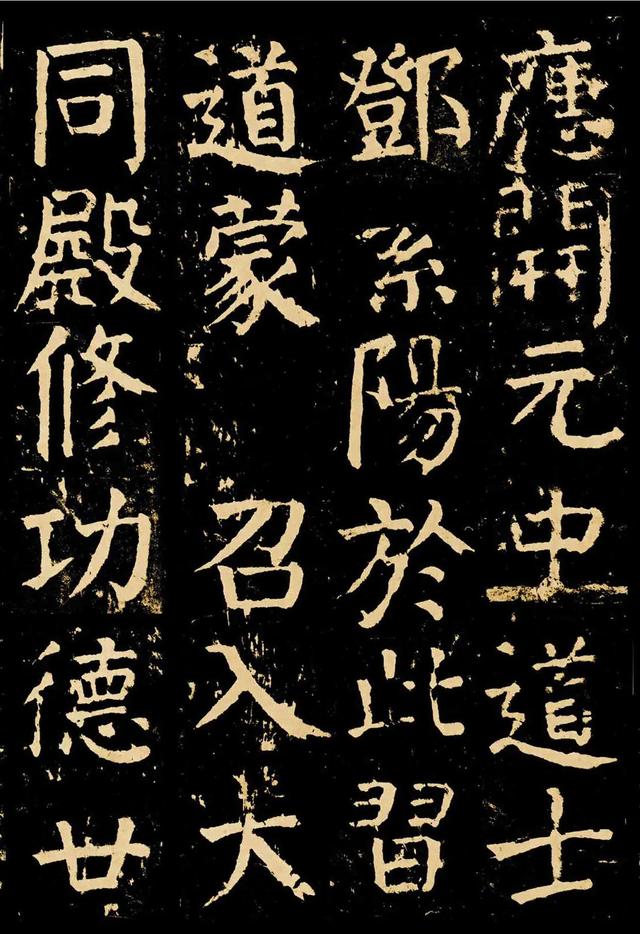 應開元中道士
鄧紫陽於此習
道蒙召入大
同殿修功德廿